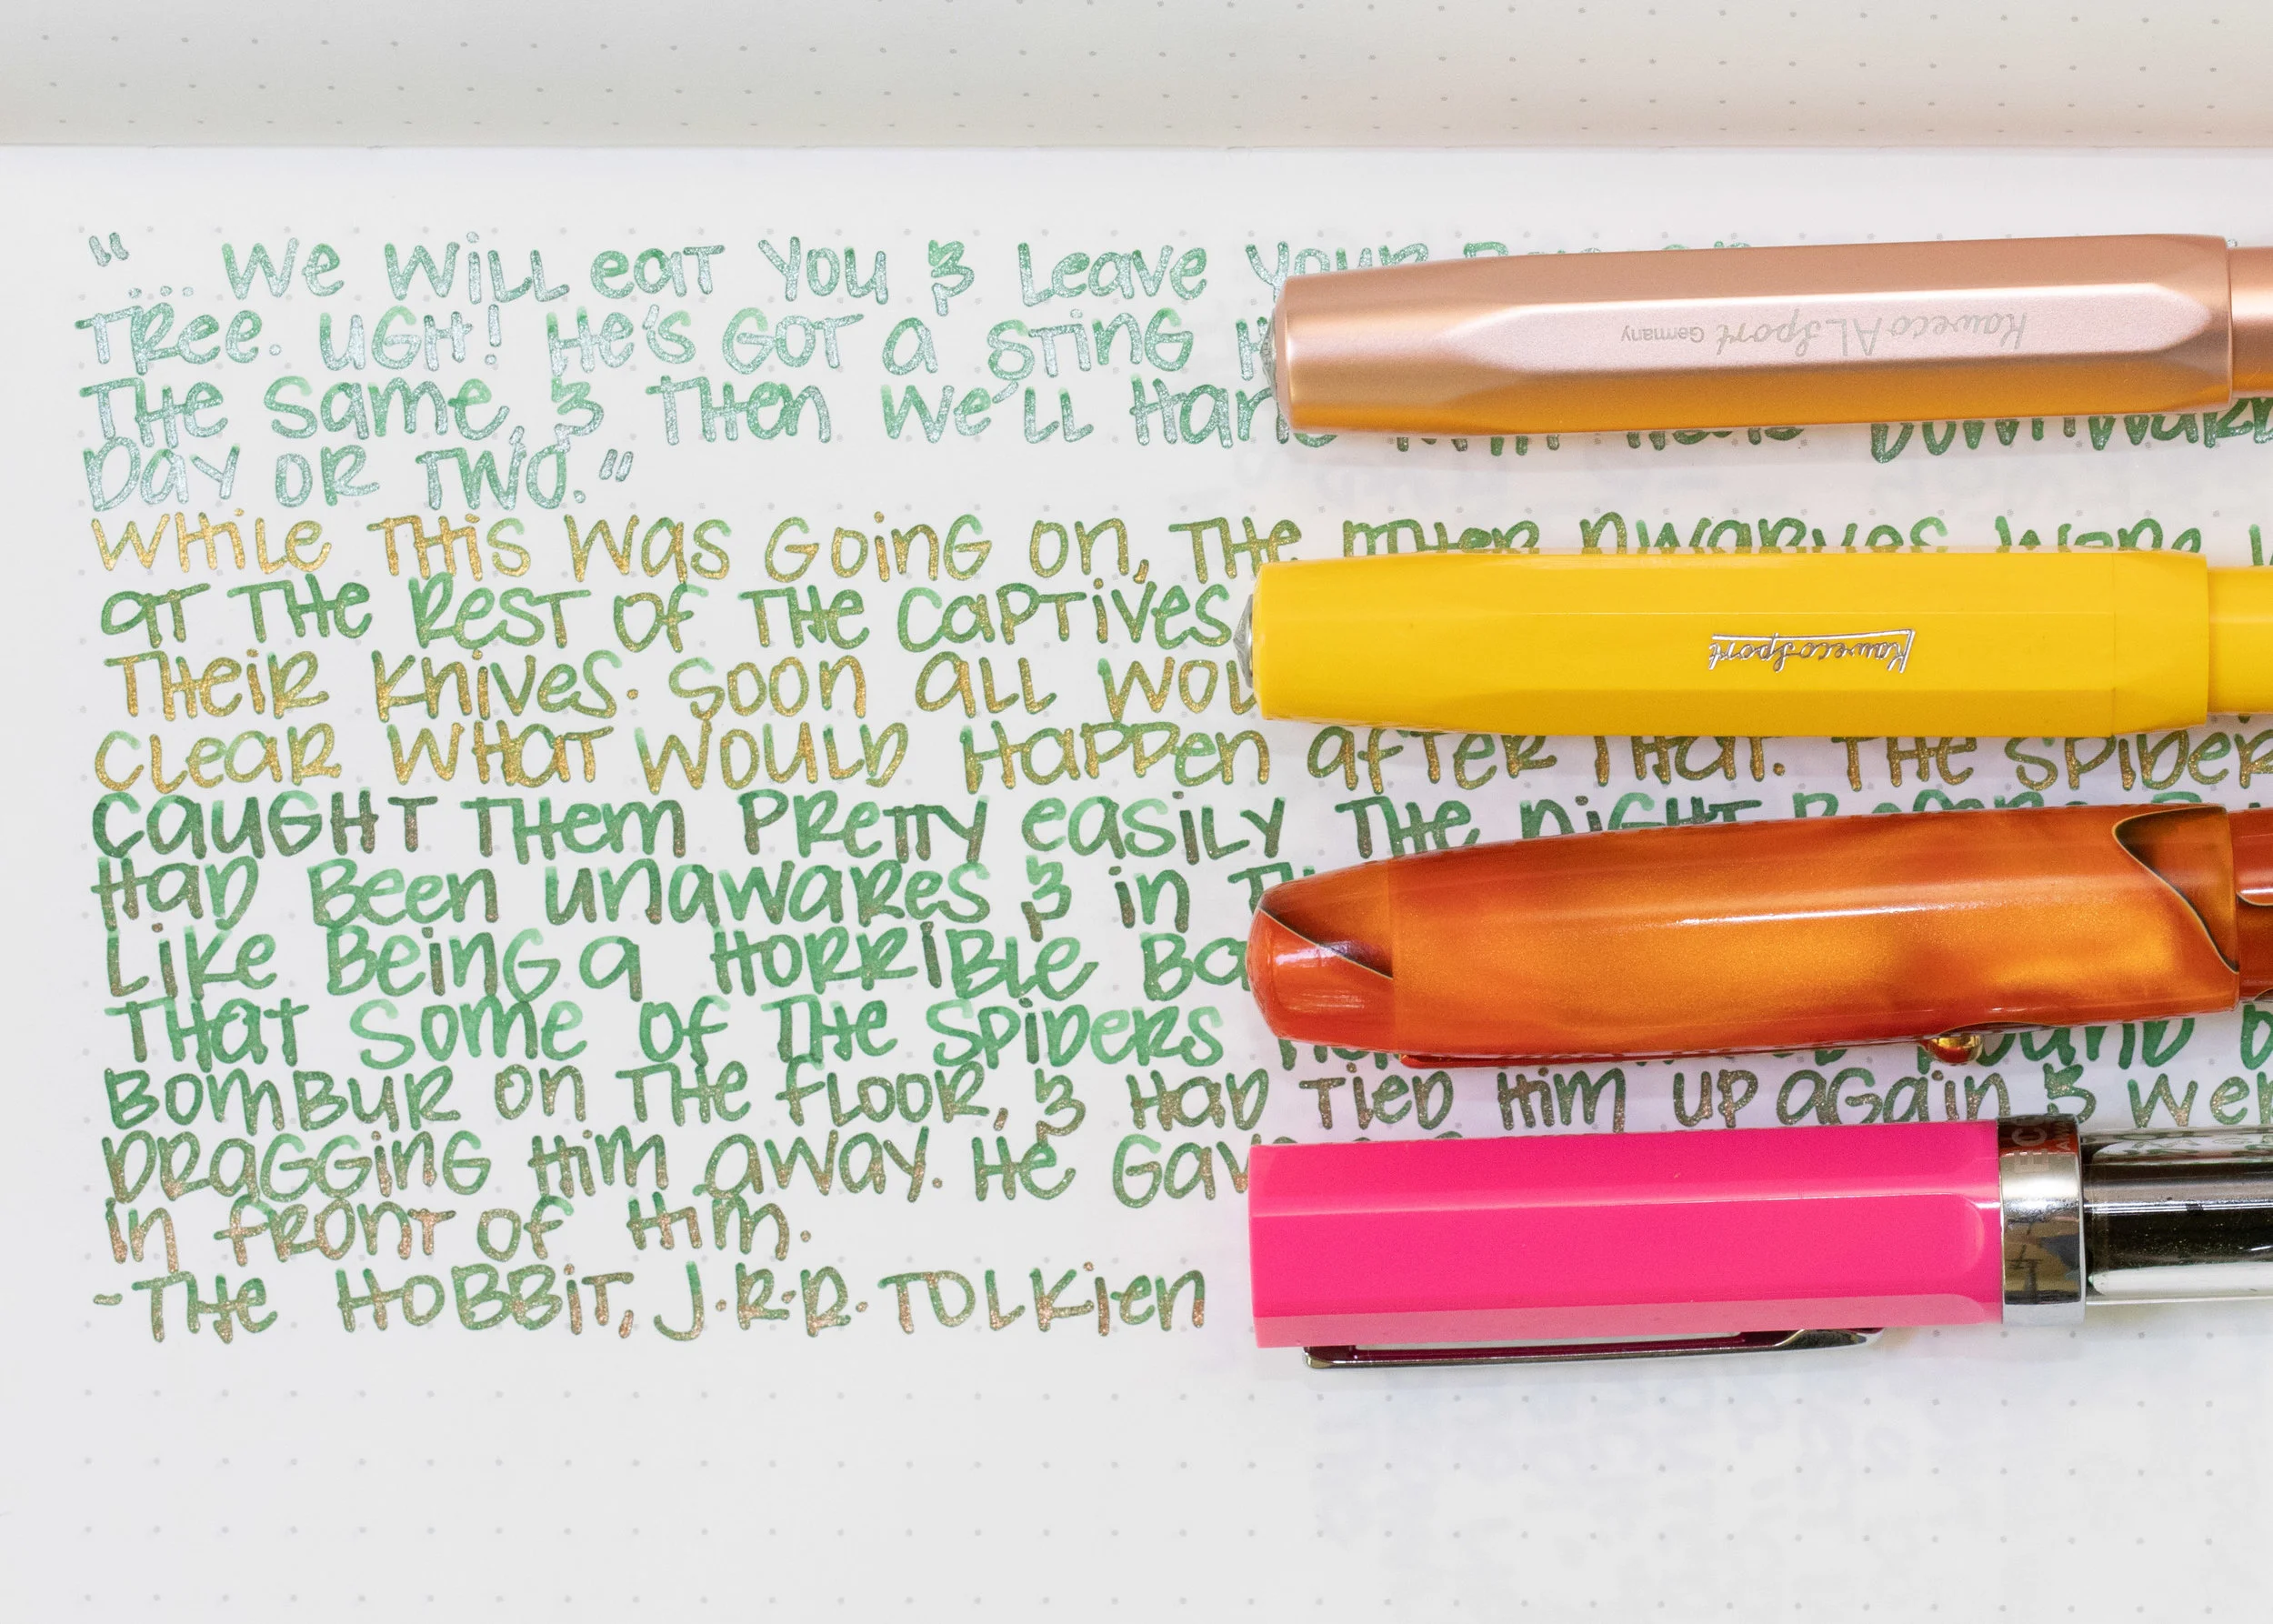 "... We will eat you & leave your
Tree. Ugh! He's got a sting
the same, & then we'll hang downward
day or two."
While this was going on, the other dwarves were
at the rest of the captives
their knives. Soon all
clear what would happen after that. The spider
caught them pretty easily the night before
had been unawares & in
like being a horrible
that some of the spiders
Bombur on the floor, & had tied him up again & wer
dragging him away. He
in front of him.
- The Hobbit, J.R.R. Tolkien
Kaweco AL Sport Germany
Kaweco Sport